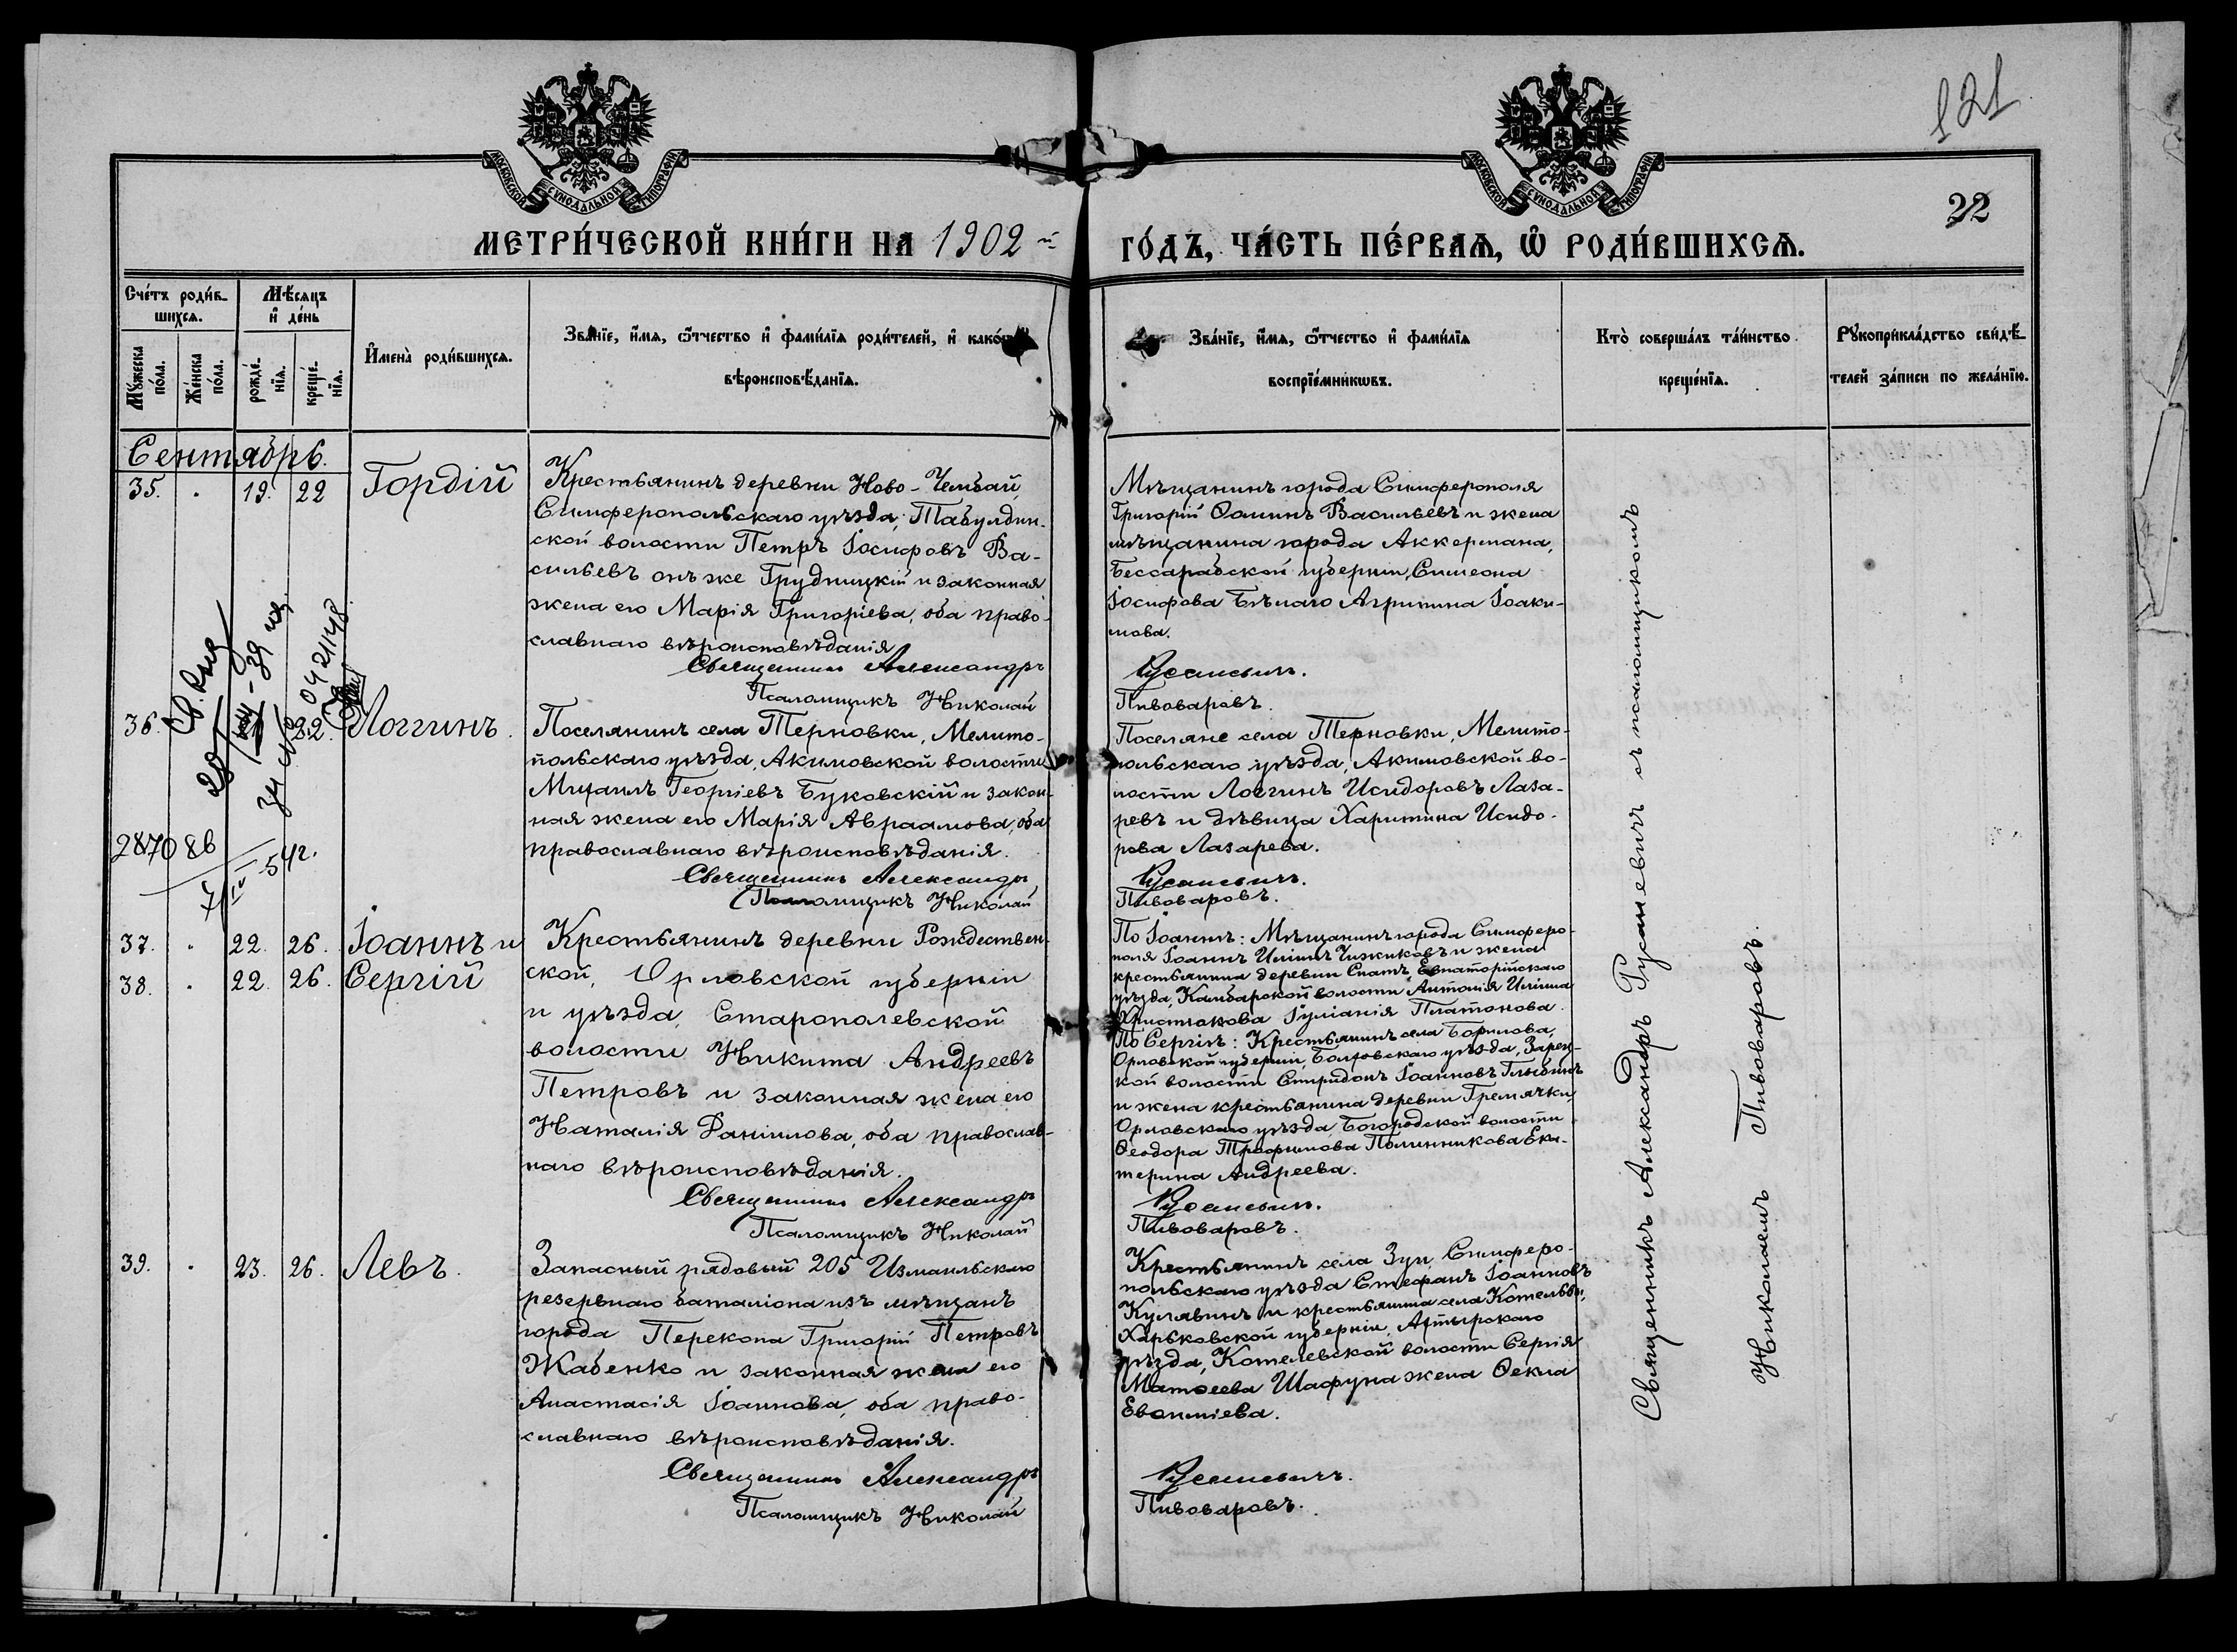 121
22
МОСКОВСКОЙ СѴНОДАЛЬНОЙ ТИПОГРАФІИ
МОСКОВСКОЙ СѴНОДАЛЬНОЙ ТИПОГРАФІИ
МЕТРИ́ЧЕСКОЙ КНИ́ГИ НА 1902 й
ГО́ДЪ, ЧА́СТЬ ПЕ́РВАѦ, Ѡ҆ РОДИ́ВШИХСѦ.
Сче́тъ роди́в-
шихсѧ.
Мѣ́сяцъ
и҆ де́нь
Мꙋ́жеска
по́ла.
Же́нска
по́ла.
рожде́-
нїѧ.
креще́-
нїѧ.
И҆мена̀ роди́вшихсѧ.
Зва́нїе, и҆́мѧ, ѻ҆́тчество и҆ фами́лїѧ роди́телей, и҆ како́
вѣроисповѣ́данїѧ.
Зва́нїе, и҆́мѧ, ѻ҆́тчество и҆ фами́лїѧ
воспрїе́мникѡвъ.
Кто̀ соверша́лъ та́инство
креще́нїѧ.
Рꙋкоприкла́дство свидѣ́-
телей за́писи по жела́нїю.
Сентябрь.
35. . 19. 22 Гордій
Крестьянинъ деревни Ново-Чембай,
Симферопольскаго уѣзда, Табулдин-
ской волости Петръ Іосифовъ Ва-
сильевъ онъ же Грудницкій и законная
жена его Марія Григоріева, оба право-
славнаго вѣроисповѣданія
Священникъ Александръ
Псаломщикъ Николай
Мѣщанинъ города Симферополя
Григорій Ѳоминъ Васильевъ и жена
мѣщанина города Аккермана,
Бессарабской губерніи, Симеона
Іосифова Бѣлаго Агрипина Іоаки-
мова.
Русаневичъ.
Пивоваровъ.
36. 22. Логгинъ.
287086
Поселянинъ села Терновки, Мелито-
польскаго уѣзда, Акимовской волости
Михаилъ Георгіевъ Буковскій и закон-
ная жена его Марія Авраамова, оба
православнаго вѣроисповѣданія.
Священникъ Александръ
Псаломщикъ Николай
Поселяне села Терновки, Мелито-
польскаго уѣзда, Акимовской во-
лости Логгинъ Исидоровъ Лаза-
ревъ и дѣвица Харитина Исидо-
рова Лазарева.
Русаневичъ.
Пивоваровъ.
37. . 22. 26. Іоаннъ и
38. . 22. 26. Сергій
Крестьянинъ деревни Рождествен-
ской, Орловской губерніи
и уѣзда, Старополевской
волости Никита Андреевъ
Петровъ и законная жена его
Наталія Даніилова, оба православ-
наго вѣроисповѣданія.
Священникъ Александръ
Псаломщикъ Николай
По Іоаннѣ: Мѣщанинъ города Симферо-
поля Іоаннъ Иліинъ Чижиковъ и жена
крестьянина деревни Спатъ, Евпаторійскаго
уѣзда, Камбарской волости Антонія Иліина
Христюкова Іуліанія Платонова.
По Сергіѣ: Крестьянинъ села Борилова,
Орловской губерніи, Болховскаго уѣзда, Зареч-
кой волости Спиридонъ Іоанновъ Глыбинъ
и жена крестьянина деревни Гремячки
Орловскаго уѣзда, Богородской волости
Ѳеодора Трофимова Полинникова Ека-
терина Андреева.
Русаневичъ.
Пивоваровъ.
39. . 23. 26. Левъ.
Запасный рядовый 205 Измаильскаго
резервнаго баталіона изъ мѣщанъ
города Перекопа Григорій Петровъ
Жабенко и законная жена его
Анастасія Іоаннова, оба право-
славнаго вѣроисповѣданія.
Священникъ Александръ
Псаломщикъ Николай
Крестьянинъ села Зуи, Симферо-
польскаго уѣзда Стефанъ Іоанновъ
Кулявинъ и крестьянина села Котельвы,
Харьковской губерніи, Ахтырскаго
уѣзда, Котелевской волости Сергія
Матѳеева Шафуна жена Ѳекла
Евѳиміева.
Русаневичъ.
Пивоваровъ.
Священникъ Александръ Русаневичъ съ псаломщикомъ
Николаемъ Пивоваровъ.